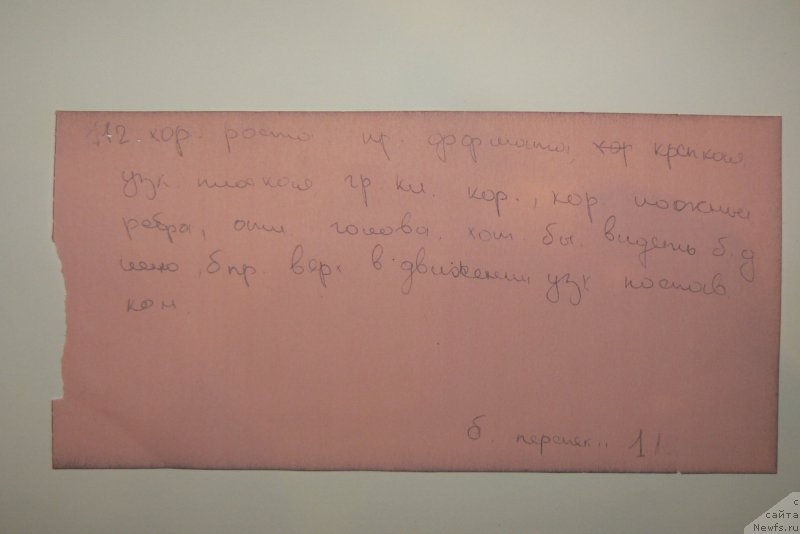 12. хор. роста пр. формата, хор крепкая
узк. плоская гр. кл. кор., хор. ложные
ребра, отл. голова. хот. бы видеть б. д
шею, б пр. верх в движении узк постав
кон
б. перспек.. 1
с
сайта
Newfs.ru